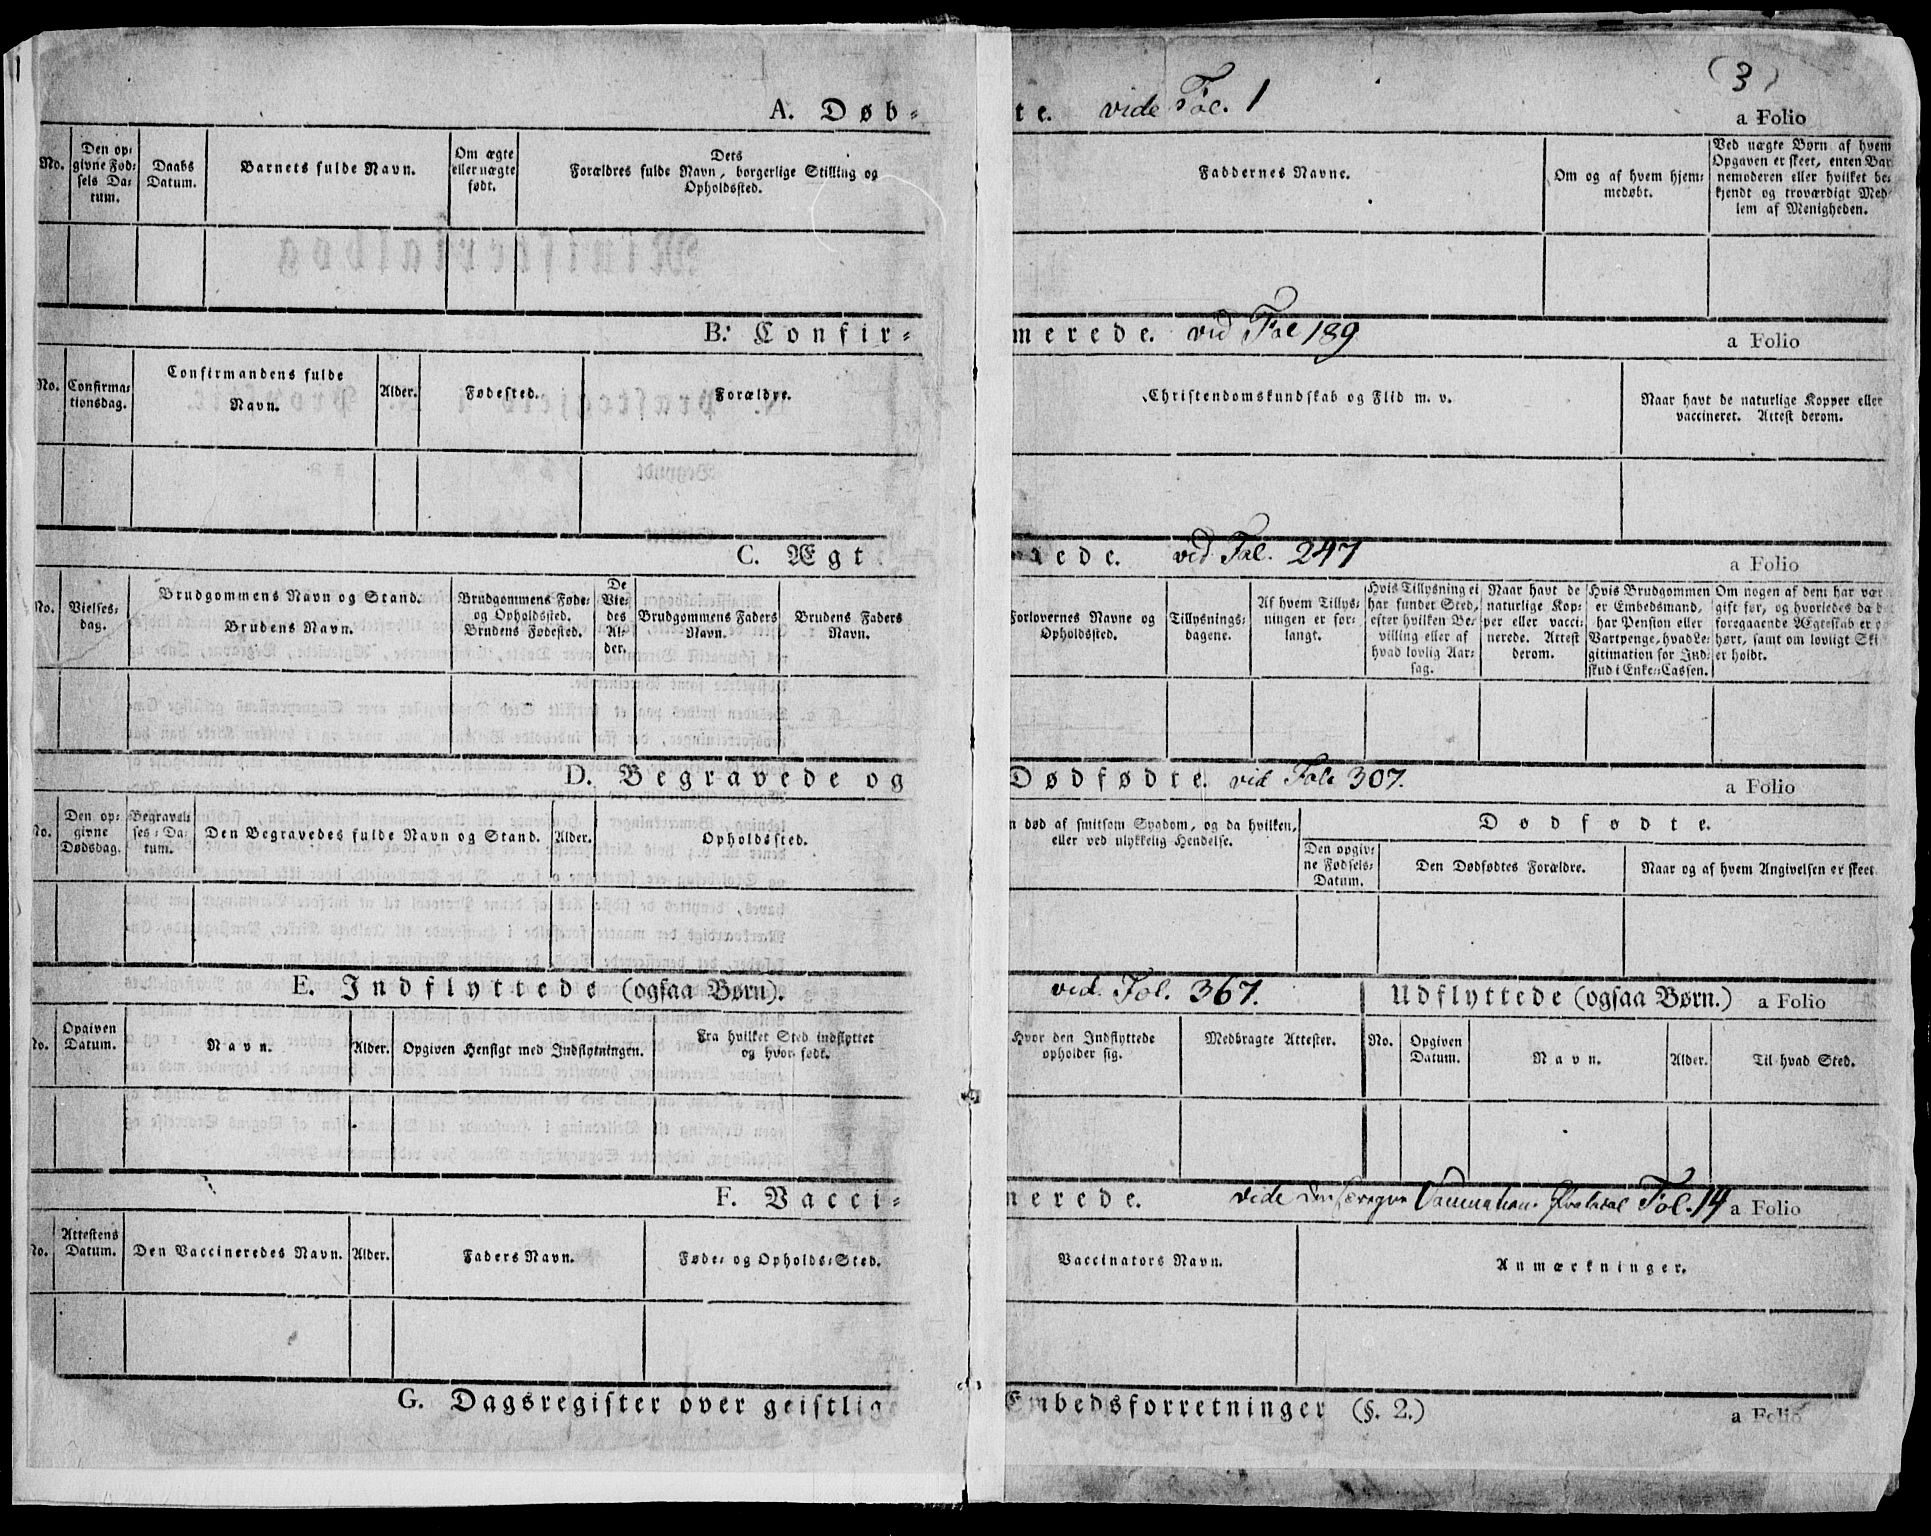 (3)
A. Døb-
te. vide Fol. 1
a Folio
No.
Den op-
givne Fød-
sels Da-
tum.
Daabs
Datum.
Barnets fulde Navn.
Om ægte
eller uægte
født.
Dets
Forældres fulde Navn, borgerlige Stilling og
Opholdssted.
Faddernes Navne.
Om og af hvem hjem-
medøbt.
Ved uægte Børn af hvem
Opgaven er skeet, enten Bar
nemoderen eller hvilket be-
kjendt og troværdigt Med
lem af Menigheden.
B. Confir-
merede. vid Fol 189
a Folio
No.
Confirma-
tionsdag.
Confirmandens fulde
Navn.
Alder.
Fødested.
Forældre.
Christendomskundskab og Flid m. v.
Naar havt de naturlige Kopper eller
vaccineret. Attest derom.
C. Ægt
rede. vid Fol. 247
a Folio
No.
Vielses-
dag.
Brudgommens Navn og Stand.
Brudens Navn.
Brudgommens Føde-
og Opholdssted.
Brudens Fødested.
De
Vie-
des
Al-
der.
Brudgommens Faders
Navn.
Brudens Faders
Navn.
Forlovernes Navne og
Opholdssted.
Tillysnings-
dagene.
Af hvem Tillys-
ningen er for-
langt.
Hvis Tillysning ei
har fundet Sted,
efter hvilken Be-
villing eller af
hvad lovlig Aar-
sag.
Naar havt de
naturlige Kop-
per eller vacci-
nerede. Attest
derom.
Hvis Brudgommen
er Embedsmand,
har Pension eller
Vartpenge, hvad Le-
gitimation for Ind-
skud i Enke-Cassen.
Om nogen af dem har vær
gift før, og hvorledes da
foregaaende Ægteskab er
hørt, samt om lovligt Ski
er holdt.
D. Begravede og
Dødfødte. vid Fol. 307.
a Folio
No.
Den op-
givne
Dødsdag.
Begravel-
ses-Da-
tum.
Den Begravedes fulde Navn og Stand.
Alder.
Opholdssted.
n død af smitsom Sygdom, og da hvilken,
eller ved ulykkelig Hendelse.
Dødfødte.
Den opgiv-
ne Fødsels-
Datum.
Den Dødfødtes Forældre.
Naar og af hvem Angivelsen er skeet.
E. Indflyttede (ogsaa Børn).
vid. Fol. 367.
Udflyttede (ogsaa Børn.) a Folio
No.
Opgiven
Datum.
Navn.
Alder.
Opgiven Hensigt med Indflytningen.
Fra hvilket Sted indflyttet
og hvor født.
Hvor den Indflyttede
opholder sig.
Medbragte Attester.
No.
Opgiven
Datum.
Navn.
Alder.
Til hvad Sted.
F. Vacci-
nerede. vide den særegne Vaccinations Protokol Fol. 14
a Folio
No.
Attestens
Datum.
Den Vaccineredes Navn.
Alder.
Faders Navn.
Føde- og Opholds-Sted.
Vaccinators Navn.
Anmærkninger.
G. Dagsregister over geistlige
Embedsforretninger (§. 2.)
a Folio